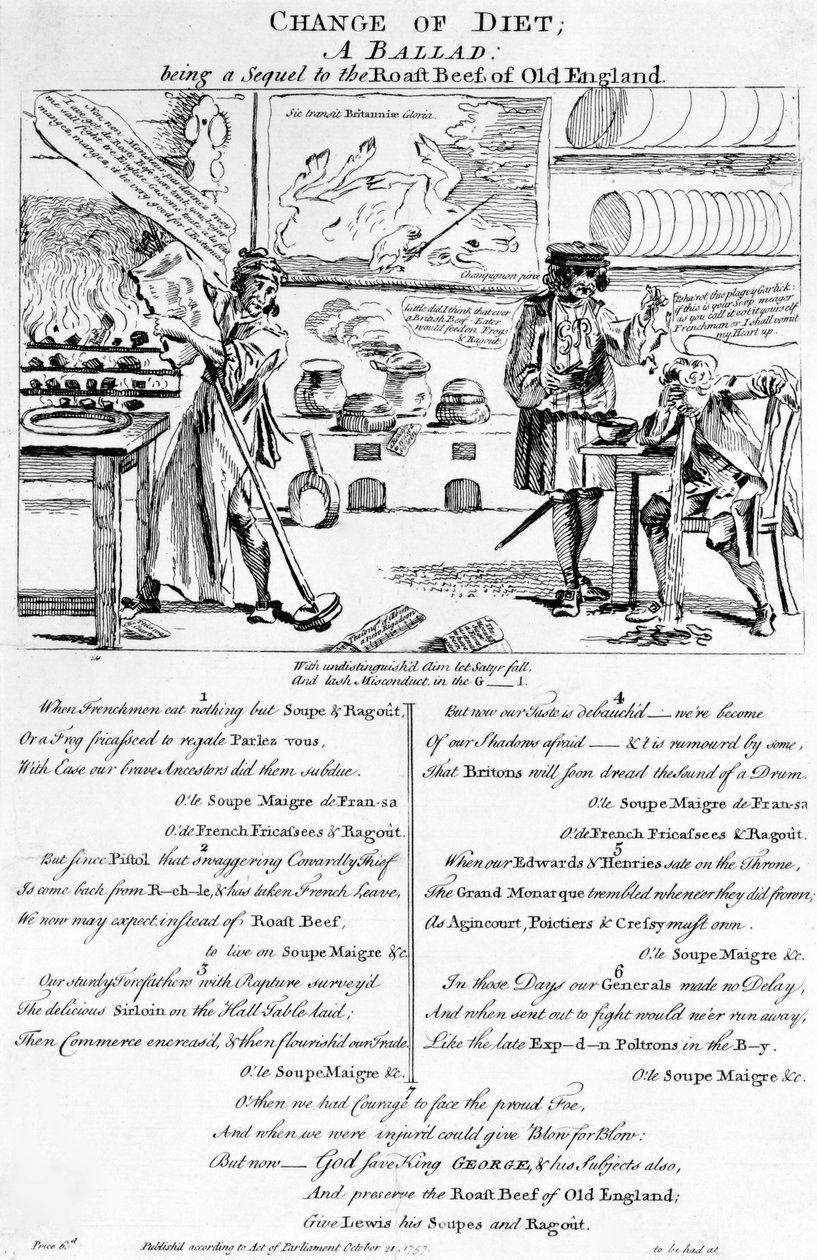 CHANGE OF DIET;
A BALLAD:
being a Sequel to the Roast Beef, of Old England.
Sic transit Britanniæ Gloria.
Champignon pinx
Little did I think that ever
a British Beef-Eater
would feed on Frogs
& Ragout
Psha! rot this plaguy Garlick:
if this is your Soop meager
as you call it eat it yourself
Frenchman or I shall vomit
my Heart up.
With undistinguish'd Aim let Satyr fall,
And lash Misconduct, in the G___l.
1
When Frenchmen eat nothing but Soupe & Ragoût,
Or a Frog fricasseed to regale Parlez vous,
With Ease our brave Ancestors did them subdue.
O! le Soupe Maigre de Fran-sa
O! de French Fricassees & Ragoût.
2
But since Pistol that swaggering Cowardly Thief
Is come back from R-ch-le, & has taken French Leave,
We now may expect instead of Roast Beef,
to live on Soupe Maigre &c.
3
Our sturdy Forefathers with Rapture survey'd
The delicious Sirloin on the Hall Table laid;
Then Commerce encreas'd, & then flourish'd our Trade.
O! le Soupe Maigre &c.
4
But now our Taste is debauch'd — we're become
Of our Shadows afraid — & t is rumour'd by some,
That Britons will soon dread the Sound of a Drum.
O! le Soupe Maigre de Fran-sa
O! de French Fricassees & Ragoût.
5
When our Edwards & Henries sate on the Throne,
The Grand Monarque trembled whene'er they did frown;
As Agincourt, Poictiers & Cressy must own.
O! le Soupe Maigre &c.
6
In those Days our Generals made no Delay,
And when sent out to fight would ne'er run away,
Like the late Exp-d-n Poltrons in the B-y.
O! le Soupe Maigre &c.
7
O! then we had Courage to face the proud Foe,
And when we were injur'd could give Blow for Blow:
But now — God save King GEORGE, & his Subjects also,
And preserve the Roast Beef of Old England;
Give Lewis his Soupes and Ragoût.
Price 6.d
Publish'd according to Act of Parliament October 21, 1757.
to be had at